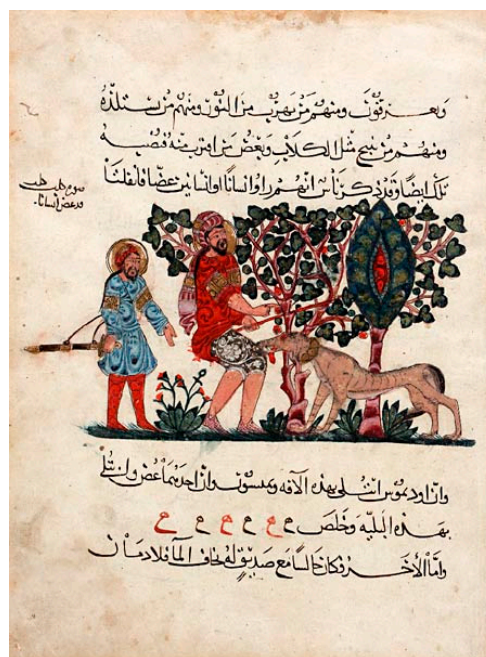 ويعرقون ومنهم من يهرب من النور ومنهم من يستلذه
ومنهم من ينبح مثل الكلاب ويعض من اقترب منه فتصيبه
تلك ايضا وقد ذكر ناس انهم راوا انسانا او انسانين عضا فافلتا
قد عض انسانا
وان اوديموس ابتلي بهذه الآفه وان احدهما عض وابتلي
بهذه البليه وخلص ح ح ح ح ح ح
واما الآخر فكان جالسا مع صديق له يخاف الما